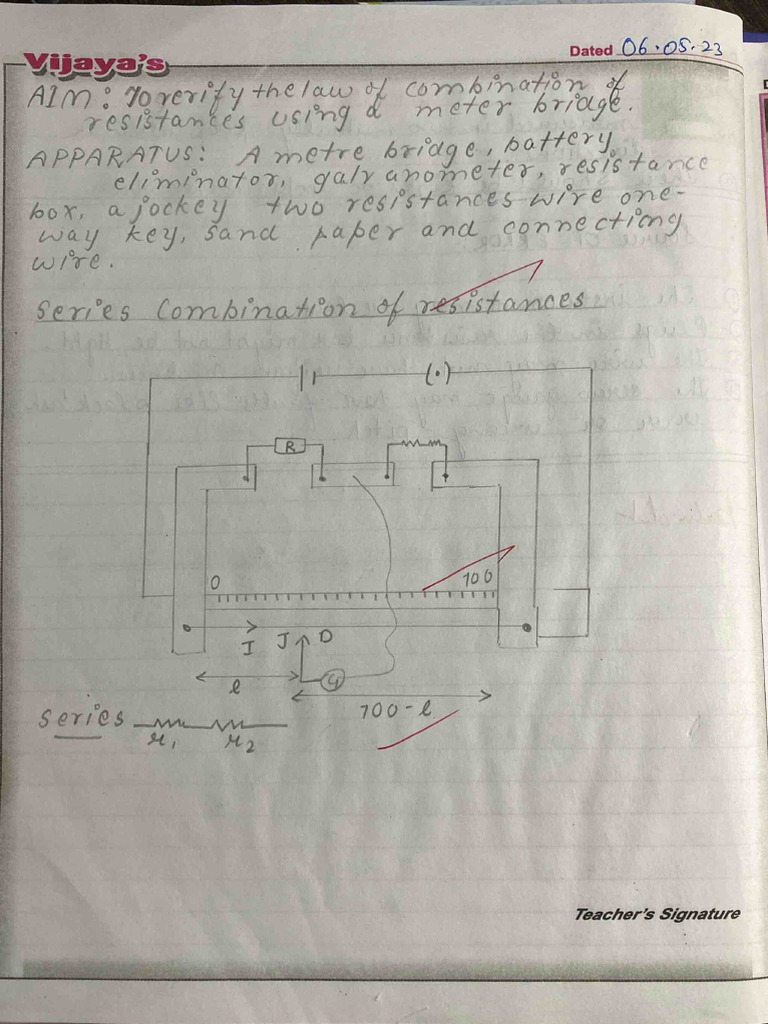 Vijaya's
Dated 06.05.23
AIM: To verify the law of combination of
resistances using a meter bridge.
APPARATUS: A metre bridge, battery
eliminator, galvanometer, resistance
box, a jockey two resistances wire one-
way key, sand paper and connecting
wire.
Series Combination of resistances
(•)
R
0
100
I
J
D
G
l
100-l
Series
r1
r2
Teacher's Signature